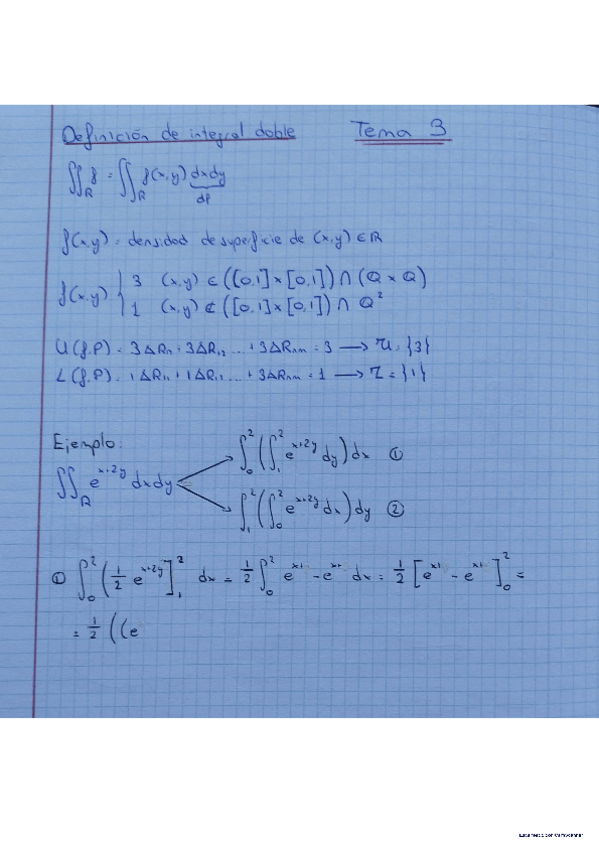 Definición de integral doble Tema 3
∬_R f = ∬_R f(x,y) dxdy
df
f(x,y) = densidad de superficie de (x,y) ∈ R
f(x,y) { 3 (x,y) ∈ ([0,1]×[0,1]) ∩ (Q × Q)
1 (x,y) ∉ ([0,1]×[0,1]) ∩ Q²
U(f,P) = 3ΔR₁₁ + 3ΔR₁₂ ... + 3ΔRnm = 3 → U = {3}
L(f,P) = 1ΔR₁₁ + 1ΔR₁₂ ... + 3ΔRnm = 1 → L = {1}
Ejemplo:
∬_R e^{x+2y} dxdy
∫₀² (∫₁² e^{x+2y} dy) dx ①
∫₁² (∫₀² e^{x+2y} dx) dy ②
① ∫₀² (1/2 e^{x+2y}]₁² dx = 1/2 ∫₀² e - e dx = 1/2 [e - e]₀² =
= 1/2 ((e